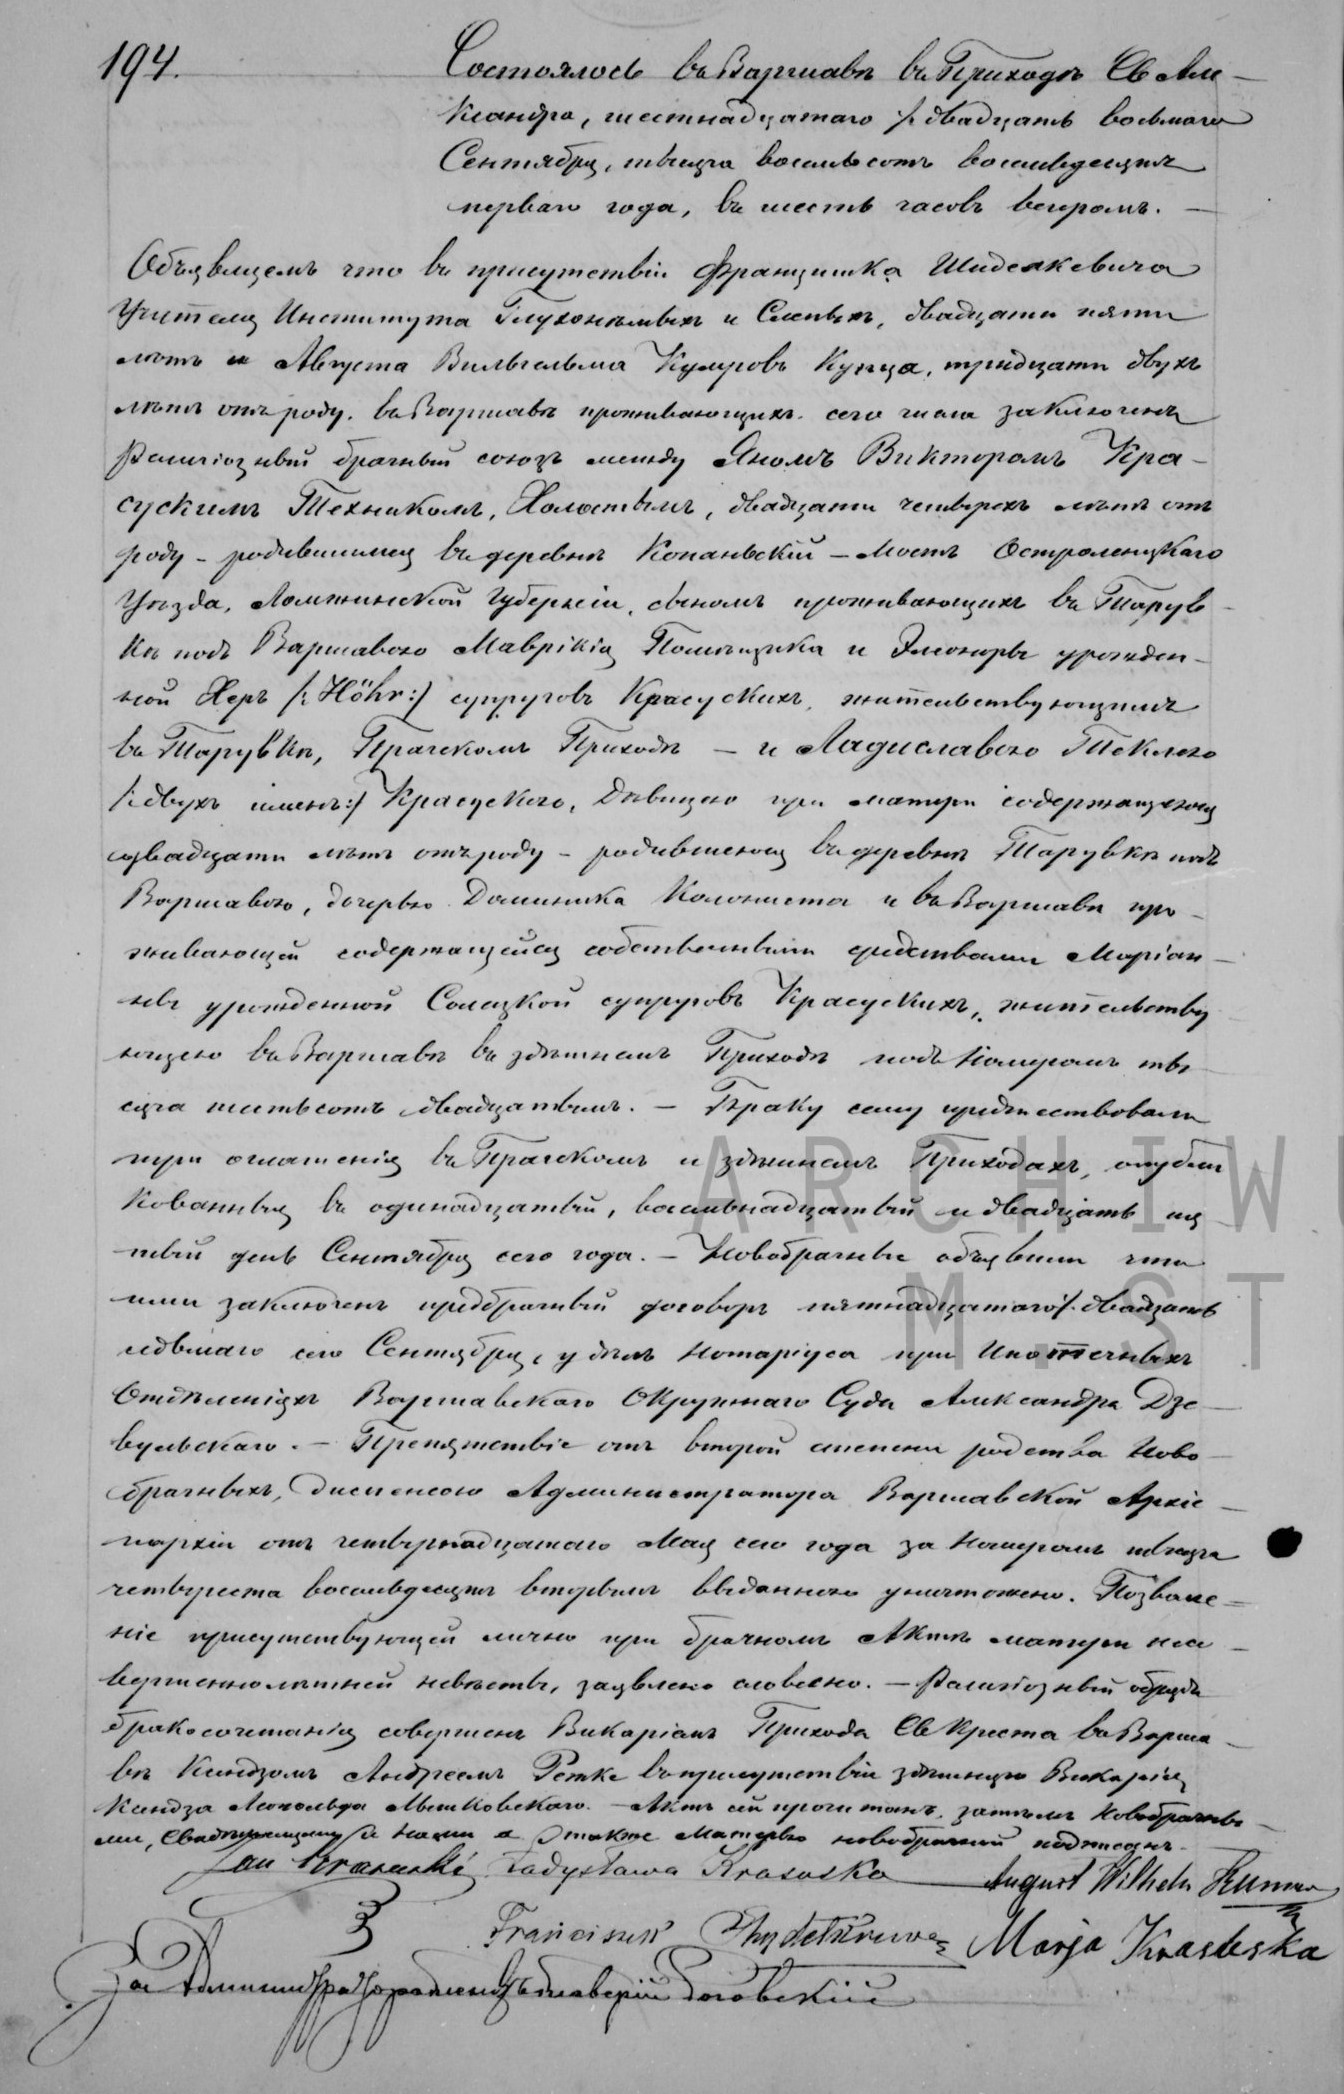 194.
Состоялось въ Варшавѣ въ Приходѣ Св Але-
ксандра, шестнадцатаго /: двадцать восьмаго
Сентября, тысяча восемьсотъ восемьдесятъ
перваго года, въ шесть часовъ вечеромъ. —
Объявляемъ что въ присутствіи Францишка
Учителя Института Глухонѣмыхъ и Слѣпыхъ, двадцати пяти
лѣтъ и Августа Вильгельма Купца, тридцати двухъ
лѣтъ отъ роду. въ Варшавѣ проживающихъ. сего числа заключенъ
Религіозный брачный союзъ между Яномъ Викторомъ Кра-
сускимъ Техникомъ, Холостымъ, двадцати четырехъ лѣтъ отъ
роду – родившимся въ деревнѣ Копаньскій – Мостъ Остроленцкаго
Уѣзда, Ломжинской Губерніи, сыномъ проживающихъ въ Тарув-
кѣ подъ Варшавою Маврікія Помѣщика и Элеоноры урожден-
ной Херъ /: Höhr:/ супруговъ Красускихъ, жительствующимъ
въ Тарувкѣ, Пражскомъ Приходѣ – и Ладиславою Теклею
/: двухъ именъ:/ Красускою, Дѣвицею при матери содержащеюся
двадцати лѣтъ отъ роду – родившеюся въ деревнѣ Тарувкѣ подъ
Варшавою, дочерью Доминика Колониста и въ Варшавѣ про-
живающей содержащейся собственными средствами Маріан-
ны урожденной супруговъ Красускихъ, жительству
ющею въ Варшавѣ въ здѣшнемъ Приходѣ подъ Номеромъ ты-
сяча шестьсотъ двадцатымъ. – Браку сему предшествовали
три оглашенія въ Пражскомъ и здѣшнемъ Приходахъ, опубли
кованныя въ одинадцатый, восемьнадцатый и двадцать пя
тый день Сентября сего года. – Новобрачные объявили что
ими заключенъ предбрачный договоръ пятнадцатаго /: двадцать
седьмаго сего Сентября, у дѣлъ Нотаріуса при Ипотечныхъ
Отдѣленіяхъ Варшавскаго Окружнаго Суда Александра Дзе-
вульскаго. – Препятствіе отъ второй степени родства Ново-
брачныхъ, диспенсою Администратора Варшавской Архіе-
пархіи отъ четырнадцатаго Мая сего года за Номеромъ тысяча
четыреста восемьдесятъ вторымъ выданною уничтожено. Позволе-
ніе присутствующей лично при брачномъ Актѣ матери несо-
вершеннолѣтней невѣсты, заявлено словесно. – Религіозный обрядъ
бракосочетанія совершенъ Викаріемъ Прихода Св Креста въ Варша-
вѣ Ксендзомъ Андреемъ Ретке въ присутствіи здѣшняго Викарія
Ксендза Леопольда – Актъ сей прочитанъ, затѣмъ Новобрачны-
ми, Свидѣтелями и Нами а также Матерью новобрачной подписанъ.
Jan Krasuski Ładysława Krasuska August Wilhelm
Franciszek Marja Krasuska
За Администратора
ARCHIW
M.ST